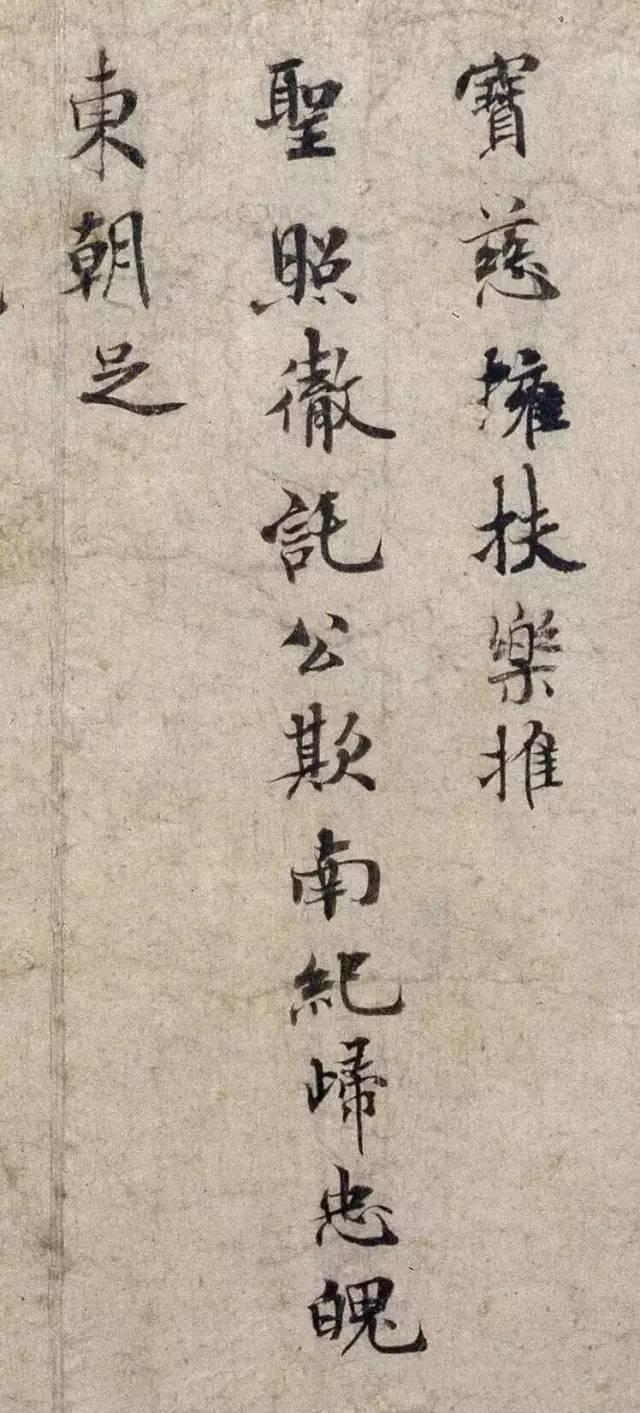 寶慈擁扶樂推
聖照徹託公欺南紀歸忠魄
東朝足